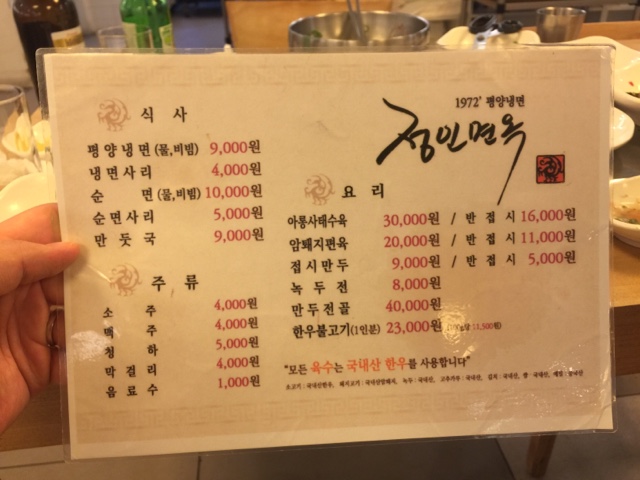 1972' 평양냉면
정인면옥
식 사
평양냉면 (물,비빔) 9,000원
냉면사리 4,000원
순 면 (물,비빔) 10,000원
순면사리 5,000원
만 둣 국 9,000원
주 류
소 주 4,000원
맥 주 4,000원
청 하 5,000원
막 걸 리 4,000원
음 료 수 1,000원
요 리
아롱사태수육 30,000원 / 반 접 시 16,000원
암퇘지편육 20,000원 / 반 접 시 11,000원
접시만두 9,000원 / 반 접 시 5,000원
녹 두 전 8,000원
만두전골 40,000원
한우불고기(1인분) 23,000원 (100g당 11,500원)
"모든 육수는 국내산 한우를 사용합니다"
소고기 : 국내산한우, 돼지고기 : 국내산암퇘지, 녹두 : 국내산, 고추가루 : 국내산, 김치 : 국내산, 쌀 : 국내산,